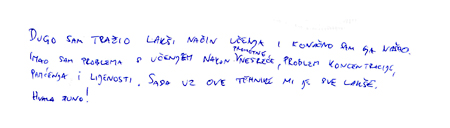 DUGO SAM TRAŽIO LAKŠI NAČIN UČENJA I KONAČNO SAM GA NAŠAO.
IMAO SAM PROBLEMA S UČENJEM NAKON PROMETNE NESREĆE, PROBLEM KONCENTRACIJE,
PAMĆENJA I LIJENOSTI. SADA UZ OVE TEHNIKE MI JE SVE LAKŠE.
HVALA PUNO!